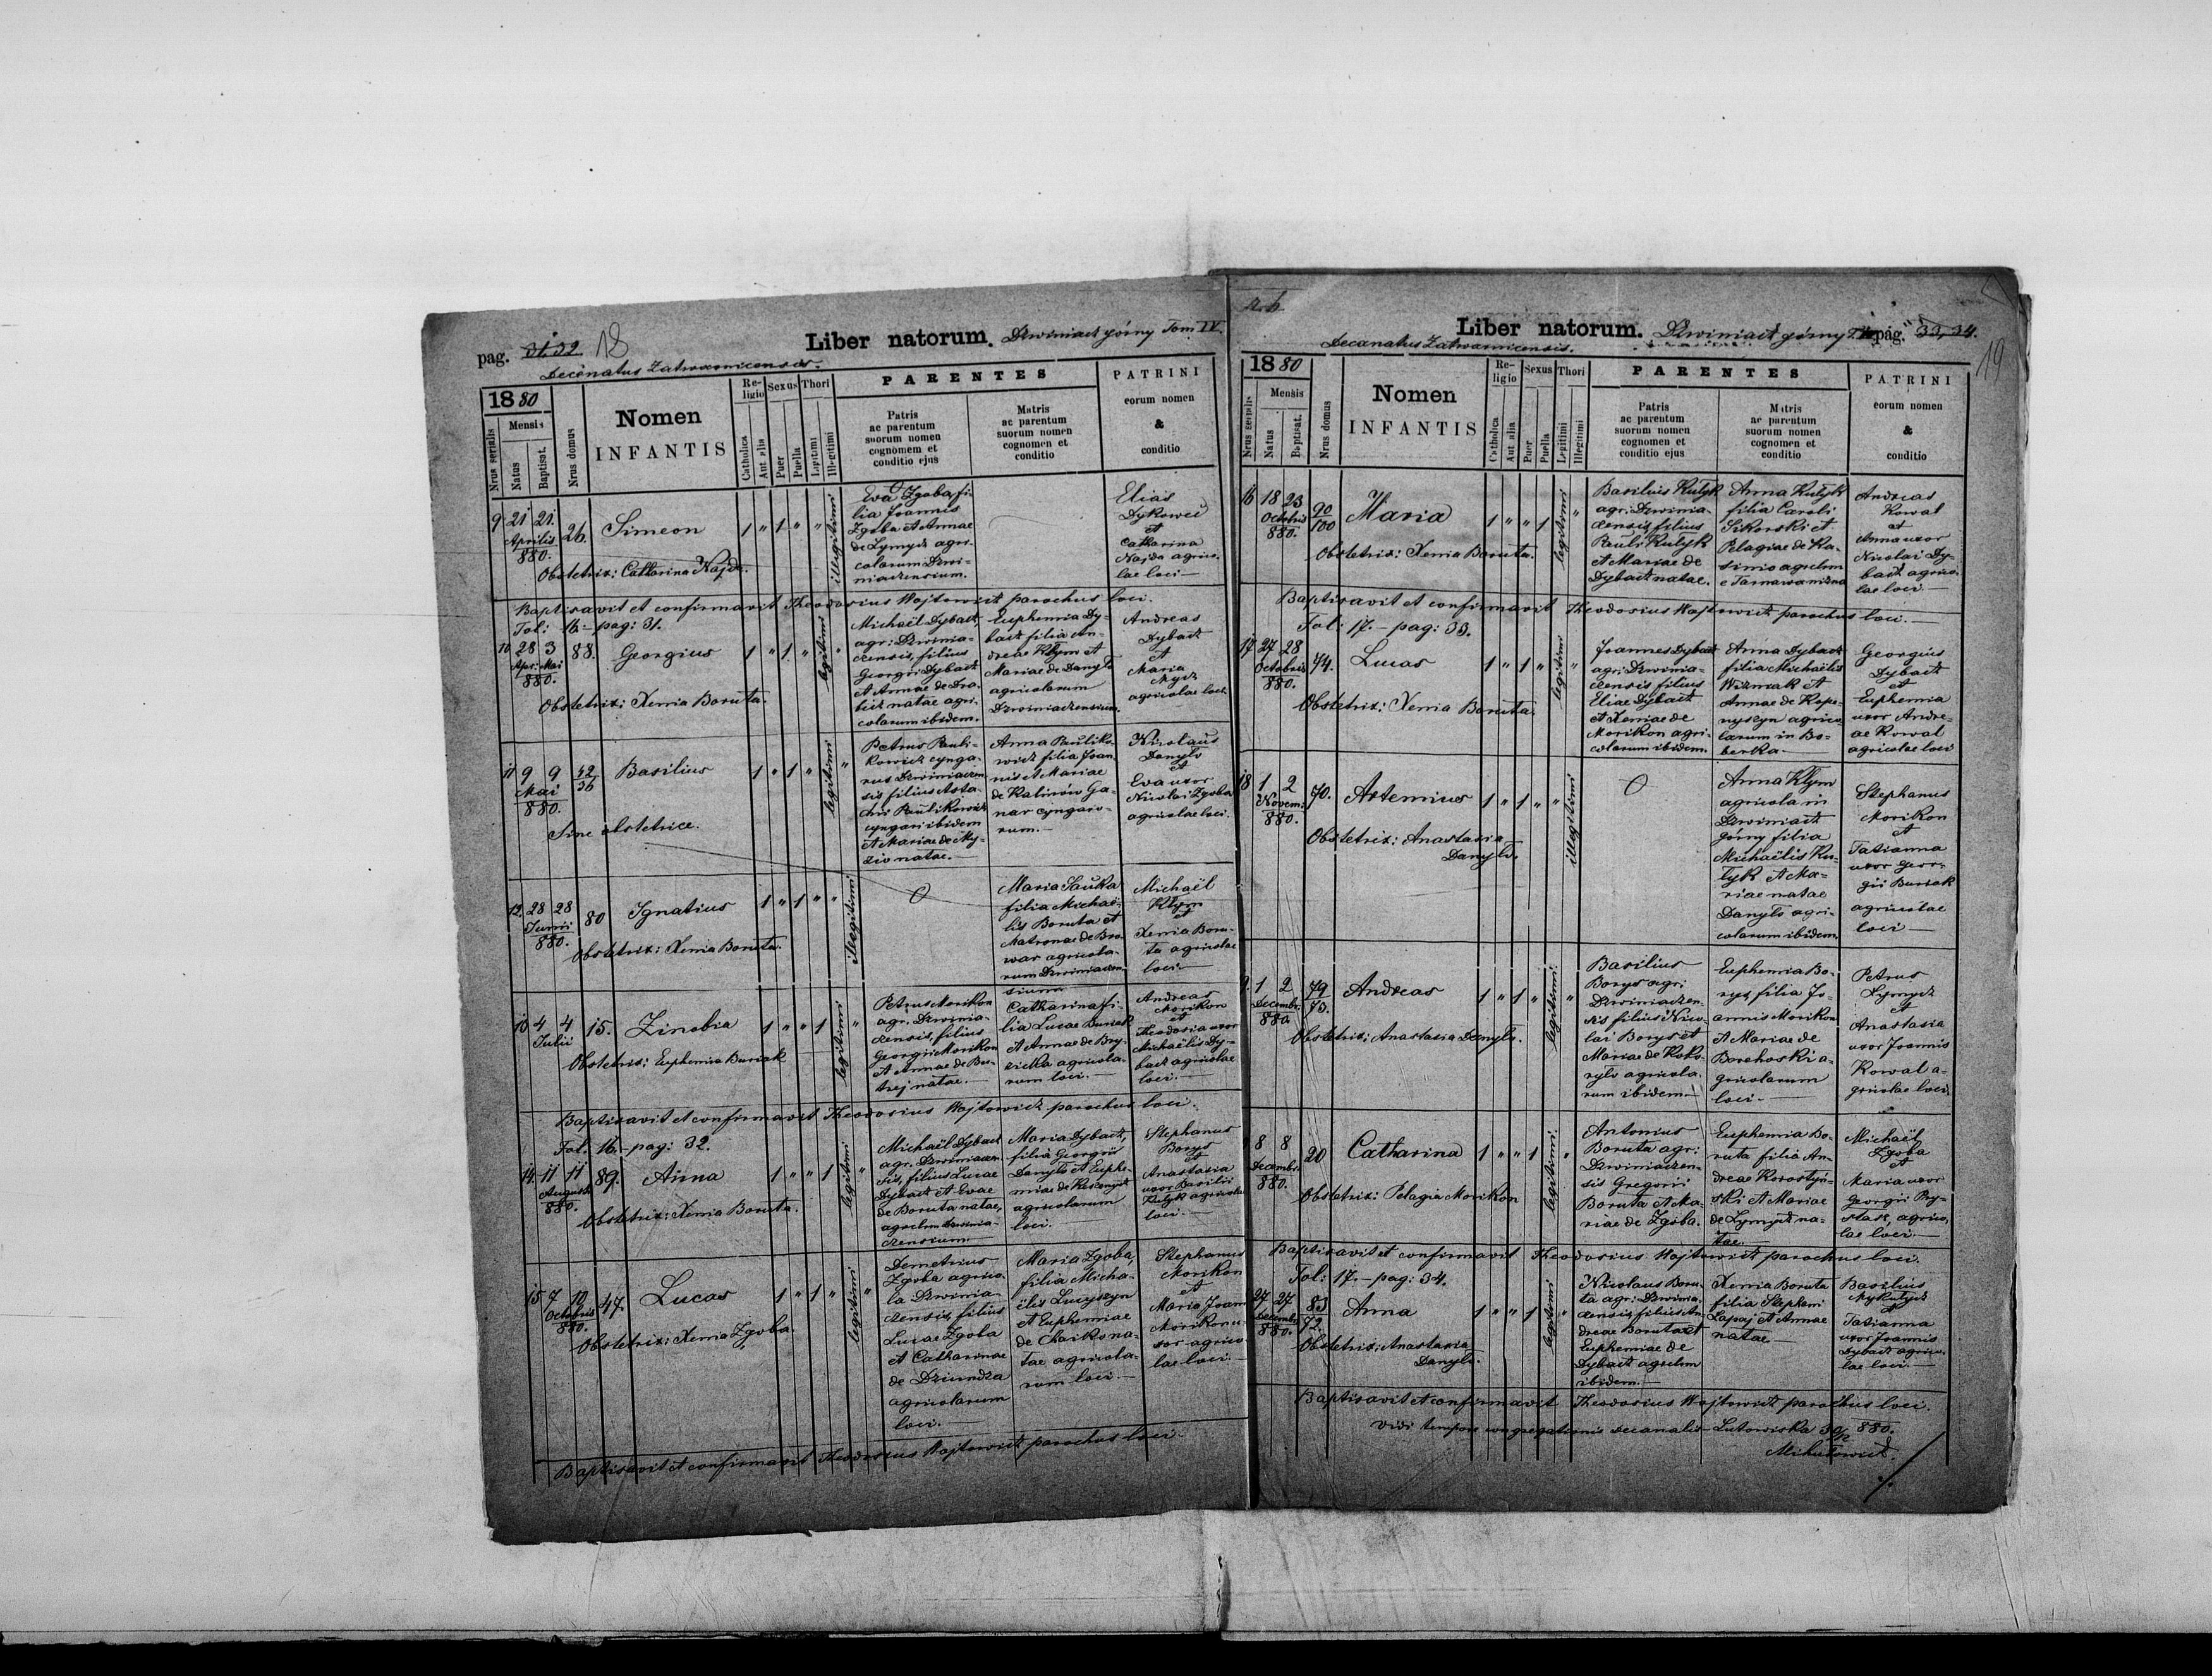 pag. 31. 32 18 Liber natorum. Dzwiniacz górny Tom IV.
Decanatus Zatwarnicensis.
18 80
Mensis
Nrus serialis
Natus
Baptisat.
Nrus domus
Nomen
INFANTIS
Re-
ligio
Catholica
Aut alia
Sexus
Puer
Puella
Thori
Legitimi
Illegitimi
PARENTES
Patris
ac parentum
suorum nomen
cognomem et
conditio ejus
Matris
ac parentum
suorum nomen
cognomen et
conditio
PATRINI
eorum nomen
&
conditio
9 21 21.
Aprilis
880.
26.
Simeon
1 " 1 " "
illegitimi
Obstetrix: Catharina Najda.
Eva Zgoba, fi-
lia Joannis
Zgoba et Annae
de Lymycz agri-
colarum Dzwi-
niaczensium.
Elias
Dykowec
et
Catharina
Najda agrico-
lae loci —
Baptisavit et confirmavit Theodosius Wojtowicz parochus loci.
Fol: 16 — pag: 31.
10 28 3
Apr: Mai
880.
88.
Georgius
1 " 1 " "
legitimi
Obstetrix: Xenia Boruta.
Michaël Dybacz,
agri: Dzwinia-
czensis, filius
Georgii Dybacz
et Annae de Dra-
bicz natae agri-
colarum ibidem.
Euphemia Dy-
bacz filia An-
dreae Klym et
Mariae de Danyło
agricolarum
Dzwiniaczensium.
Andreas
Dybacz
et
Maria
Mycz
agricolae loci.
11 9 9
Mai
880.
32
36
Basilius
1 " 1 " "
legitimi
Sine obstetrice.
Petrus Pauli-
kowicz cynga-
rus Dzwiniaczen-
sis filius Asta-
chii Paulikowicz
cyngari ibidem
et Mariae de My-
zio natae. —
Anna Pauliko-
wicz filia Joan-
nis et Mariae
de Kalinów Ga-
nar cyngaro-
rum. —
Nicolaus
Danyło
et
Eva uxor
Nicolai Zgoba
agricolae loci.
12. 28 28
Junii
880.
80
Ignatius
1 " 1 " "
illegitimi
Obstetrix: Xenia Boruta.
0
Maria Sauka
filia Michaë-
lis Boruta et
Matronae de Bro-
war agricola-
rum Dzwiniaczen-
sium
Michaël
Klym
et
Xenia Boru-
ta agricolae
loci —
13 4 4
Julii
15.
Zinobia
1 " " 1
legitimi "
Obstetrix: Euphemia Buriak
Petrus Morikon
agr. Dzwinia-
czensis, filius
Georgii Morikon
et Annae de Bu-
trej natae. —
Catharina fi-
lia Lucae Buriak
et Annae de Bry-
zicka agricola-
rum loci. —
Andreas
Morikon
et
Theodosia uxor
Michaëlis Dy-
bacz agricolae
loci. —
Baptisavit et confirmavit Theodosius Wojtowicz parochus loci.
Fol. 16. — pag: 32.
14. 11 11
Augusti
880.
89.
Anna
1 " " 1
legitimi "
Obstetrix: Xenia Boruta.
Michaël Dybacz
agr. Dzwiniaczen-
sis, filius Lucae
Dybacz et Evae
de Boruta natae,
agrclrm Dzwinia-
czensium
Maria Dybacz,
filia Georgii
Danyło et Euphe-
miae de
agricolarum
loci.
Stephanus
Borys
et
Anastasia
uxor Basilii
Kułyk agricolae
loci. —
15 7 10
Octobris
880.
47.
Lucas
1 " 1 " "
legitimi
Obstetrix: Xenia Zgoba.
Demetrius
Zgoba agrico-
la Dzwinia-
czensis, filius
Lucae Zgoba
et Catharinae
de Dziundza
agricolarum
loci. —
Maria Zgoba,
filia Micha-
ëlis Lucyszyn
et Euphemiae
de Chaiko na-
tae agricola-
rum loci —
Stephanus
Morikon
et
Maria Joan
Morikon u-
xor agrico-
lae loci. —
Baptisavit et confirmavit Theodosius Wojtowicz parochus loci.
Liber natorum. Dzwiniacz górny pag. 33, 34.
Decanatus Zatwarnicensis.
19
18 80
Mensis
Nrus serialis
Natus
Baptisat.
Nrus domus
Nomen
INFANTIS
Re-
ligio
Catholica
Aut alia
Sexus
Puer
Puella
Thori
Legitimi
Illegitimi
PARENTES
Patris
ac parentum
suorum nomen
cognomen et
conditio ejus
Matris
ac parentum
suorum nomen
cognomen et
conditio
PATRINI
eorum nomen
&
conditio
16 18 23
Octobris
880.
90
100
Maria
1 " " 1
legitimi "
Obstetrix: Xenia Boruta.
Basilius Kułyk
agr. Dzwinia-
czensis, filius
Pauli Kułyk
et Mariae de
Dybacz natae.
Anna Kułyk
filia Caroli
Sikorski et
Pelagiae de Ka-
sinio agrclrm
e Tarnawa nizna
Andreas
Kowal
et
Anna uxor
Nicolai Dy-
bacz agrico-
lae loci. —
Baptisavit et confirmavit Theodosius Wojtowicz parochus loci. —
Fol: 17. — pag: 33.
17 27 28
Octobris
880.
74.
Lucas
1 " 1 "
legitimi "
Obstetrix: Xenia Boruta.
Joannes Dybacz
agri: Dzwinia-
czensis filius
Eliae Dybacz
et Xeniae de
Morikon agri-
colarum ibidem.
Anna Dybacz
filia Michaëlis
Wizniak et
Annae de Kope-
nyszyn agrico-
larum in Bo-
berka. —
Georgius
Dybacz
et
Euphemia
uxor Andre-
ae Kowal
agricolae loci
18 1 2
Novem:
880.
70.
Artemius
1 " 1 " "
illegitimi
Obstetrix: Anastasia
Danyło.
0
Anna Klym
agricola in
Dzwiniacz
górny filia
Michaëlis Ku-
łyk et Ma-
riae natae
Danyło agri-
colarum ibidem.
Stephanus
Morikon
et
Tatianna
uxor Geor-
gii Buriak
agricolae
loci —
1 2
Decembr.
880
79
73.
Andreas
1 " 1 "
legitimi "
Obstetrix: Anastasia Danyło.
Basilius
Borys agr:
Dzwiniaczen-
sis filius Nico-
lai Borys et
Mariae de Koko-
ryło agricola-
rum ibidem —
Euphemia Bo-
rys, filia Jo-
annis Morikon
et Mariae de
Borchoski a-
gricolarum
loci —
Petrus
Lymycz
et
Anastasia
uxor Joannis
Kowal a-
gricolae loci.
8 8
Decembr.
880.
20
Catharina
1 " " 1
legitimi "
Obstetrix: Pelagia Morikon
Antonius
Boruta agr:
Dzwiniaczen-
sis Gregorii
Boruta et Ma-
riae de Zgoba.
Euphemia Bo-
ruta filia An-
dreae Korostyń-
ski et Mariae
de Lymycz na-
tae.
Michaël
Zgoba
et
Maria uxor
Georgii Pry-
stasz, agrico-
lae loci —
Baptisavit et confirmavit Theodosius Wojtowicz parochus loci.
Fol: 17. — pag: 34.
27 27
Decembr.
880.
83
72.
Anna
1 " " 1
legitimi "
Obstetrix: Anastasia
Danyło.
Nicolaus Boru-
ta agr: Dzwinia-
czensis, filius An-
dreae Boruta et
Euphemiae de
Dybacz agrclrm
ibidem. —
Xenia Boruta
filia Stephani
Lapaj et Annae
natae —
Basilius
Mykułycz
et
Tatianna
uxor Joannis
Dybacz agrico-
lae loci. —
Baptisavit et confirmavit Theodosius Wojtowicz parochus loci.
Vidi tempore congregationis decanalis Lutowiska 30/12 880.